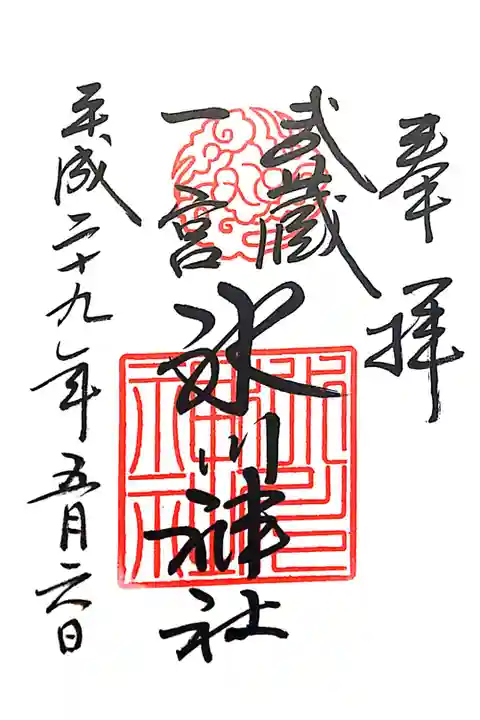 奉拝
武蔵
一宮
氷川神社
平成二十九年五月六日
氷川神社